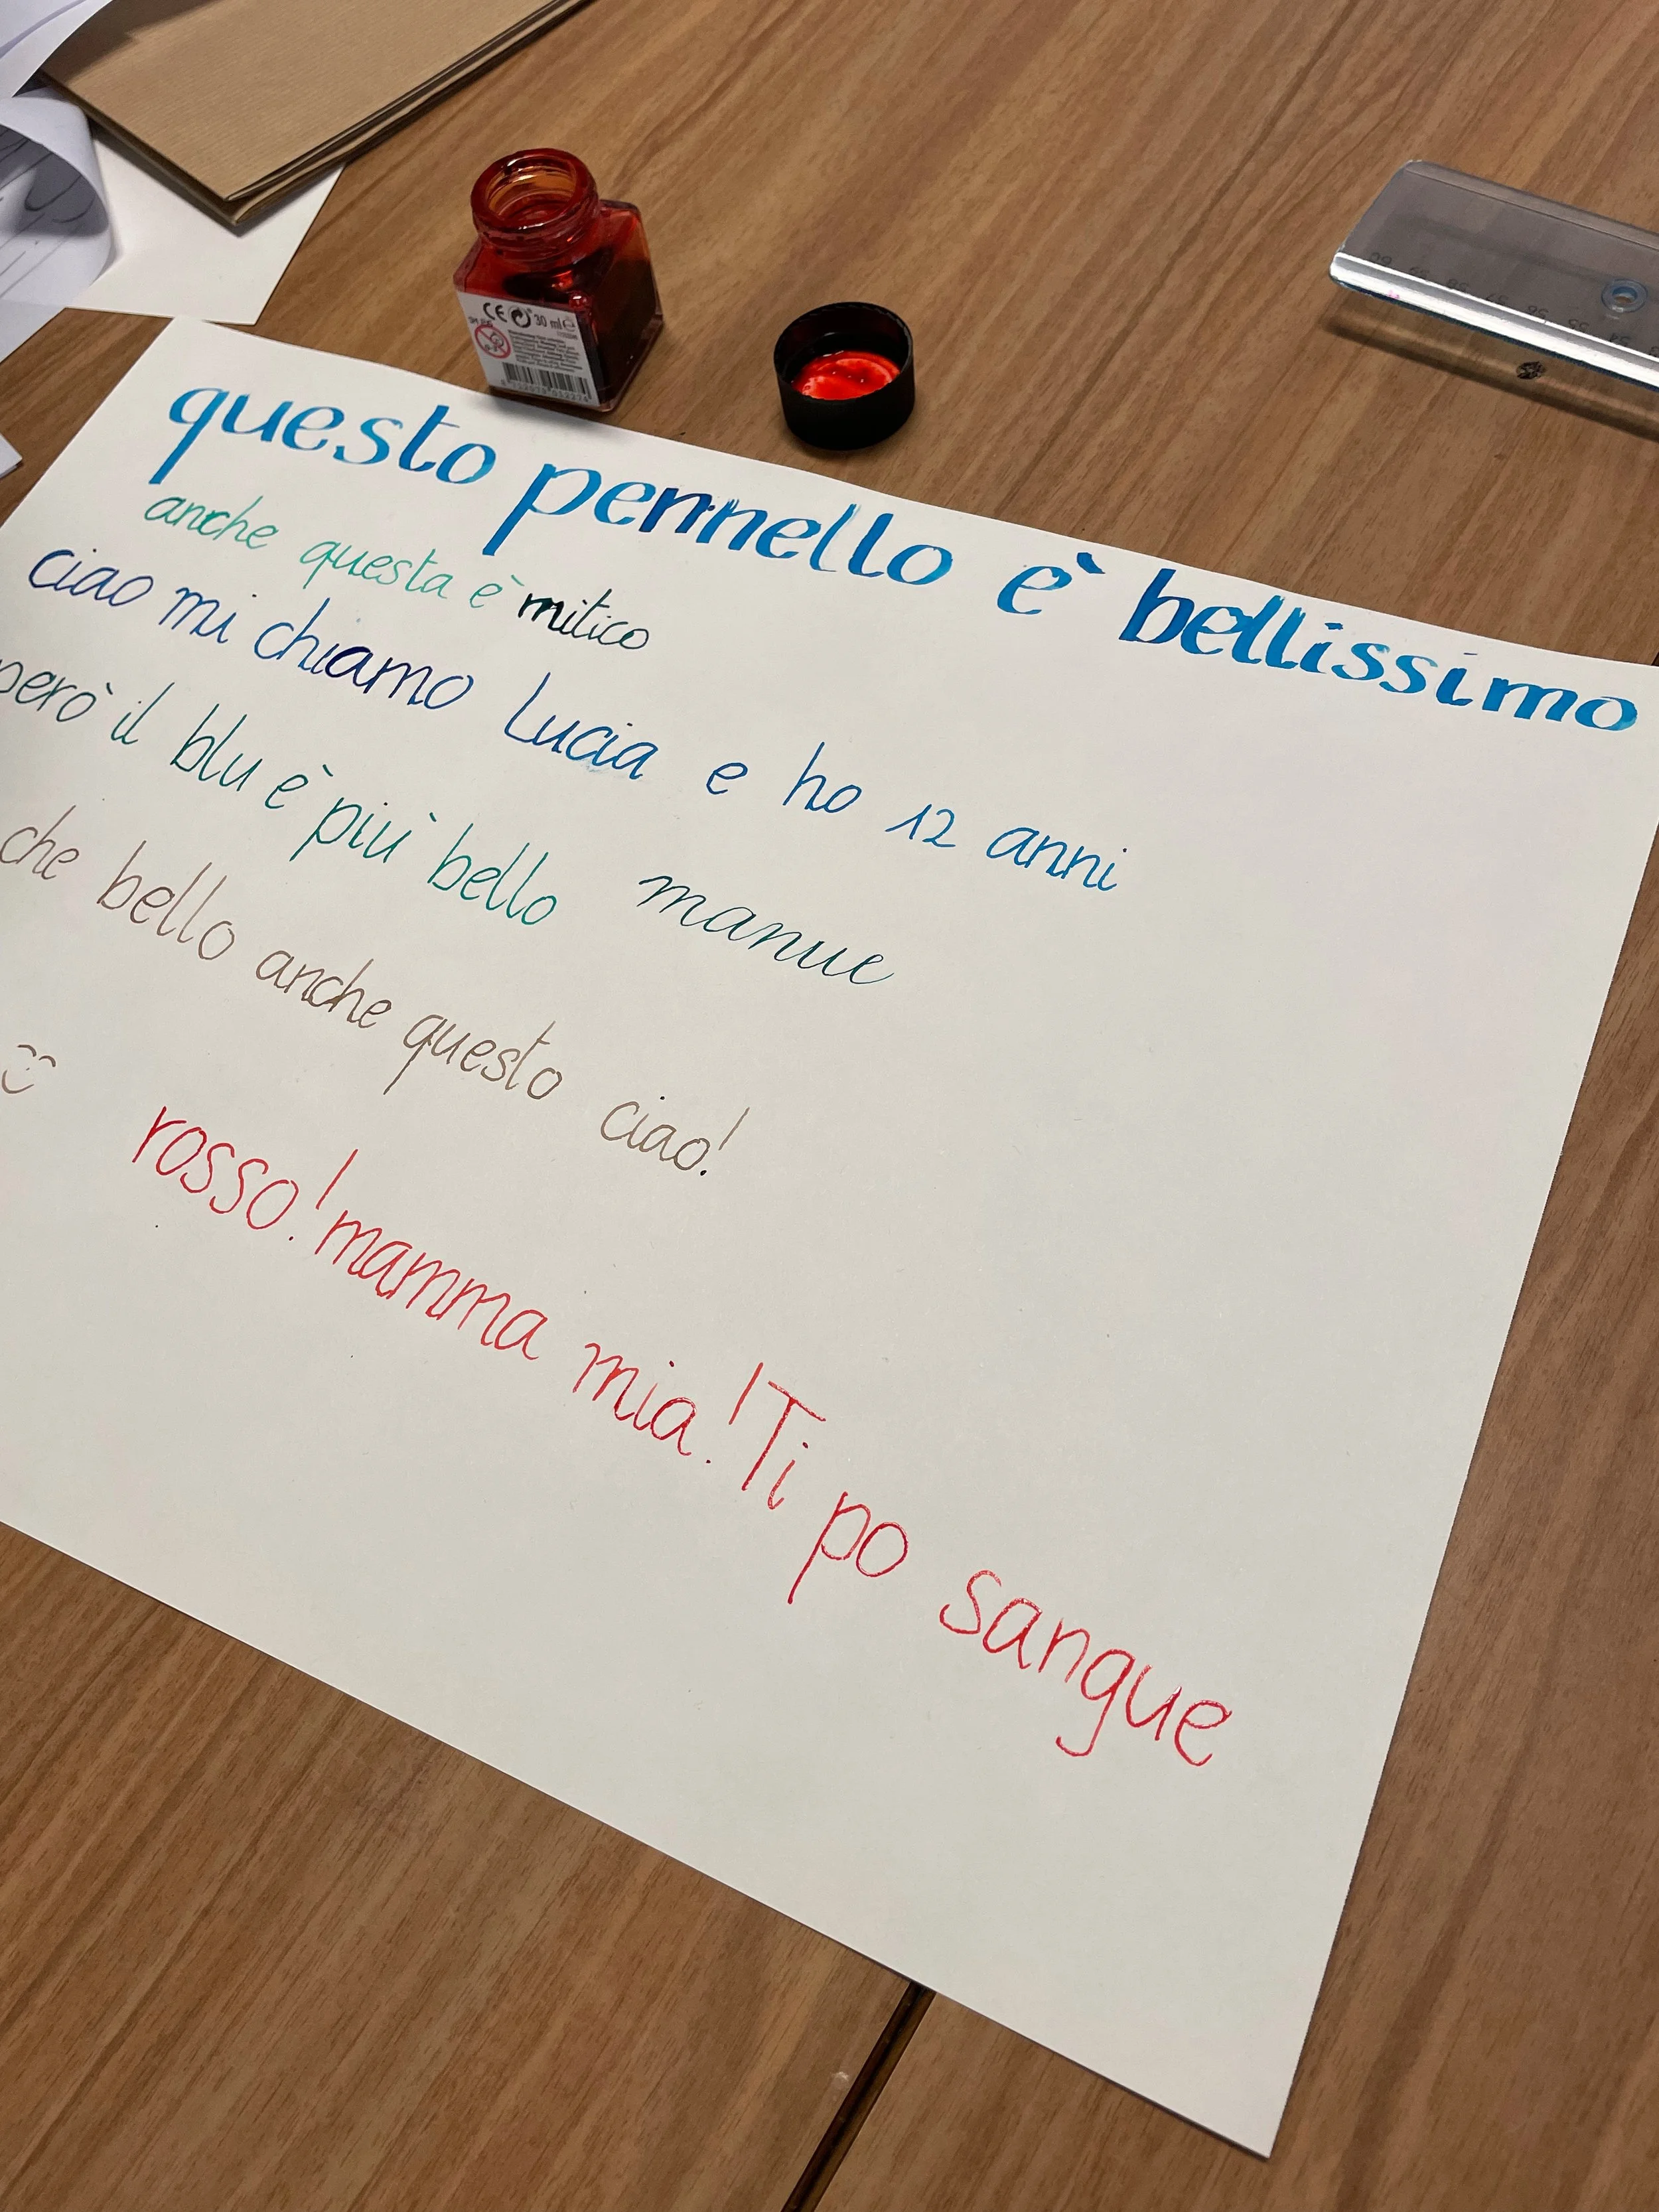 CE 30 ml e
questo pennello è bellissimo
anche questa è mitico
ciao mi chiamo Lucia e ho 12 anni
però il blu è più bello manue
che bello anche questo ciao!
rosso! mamma mia! Ti po sangue